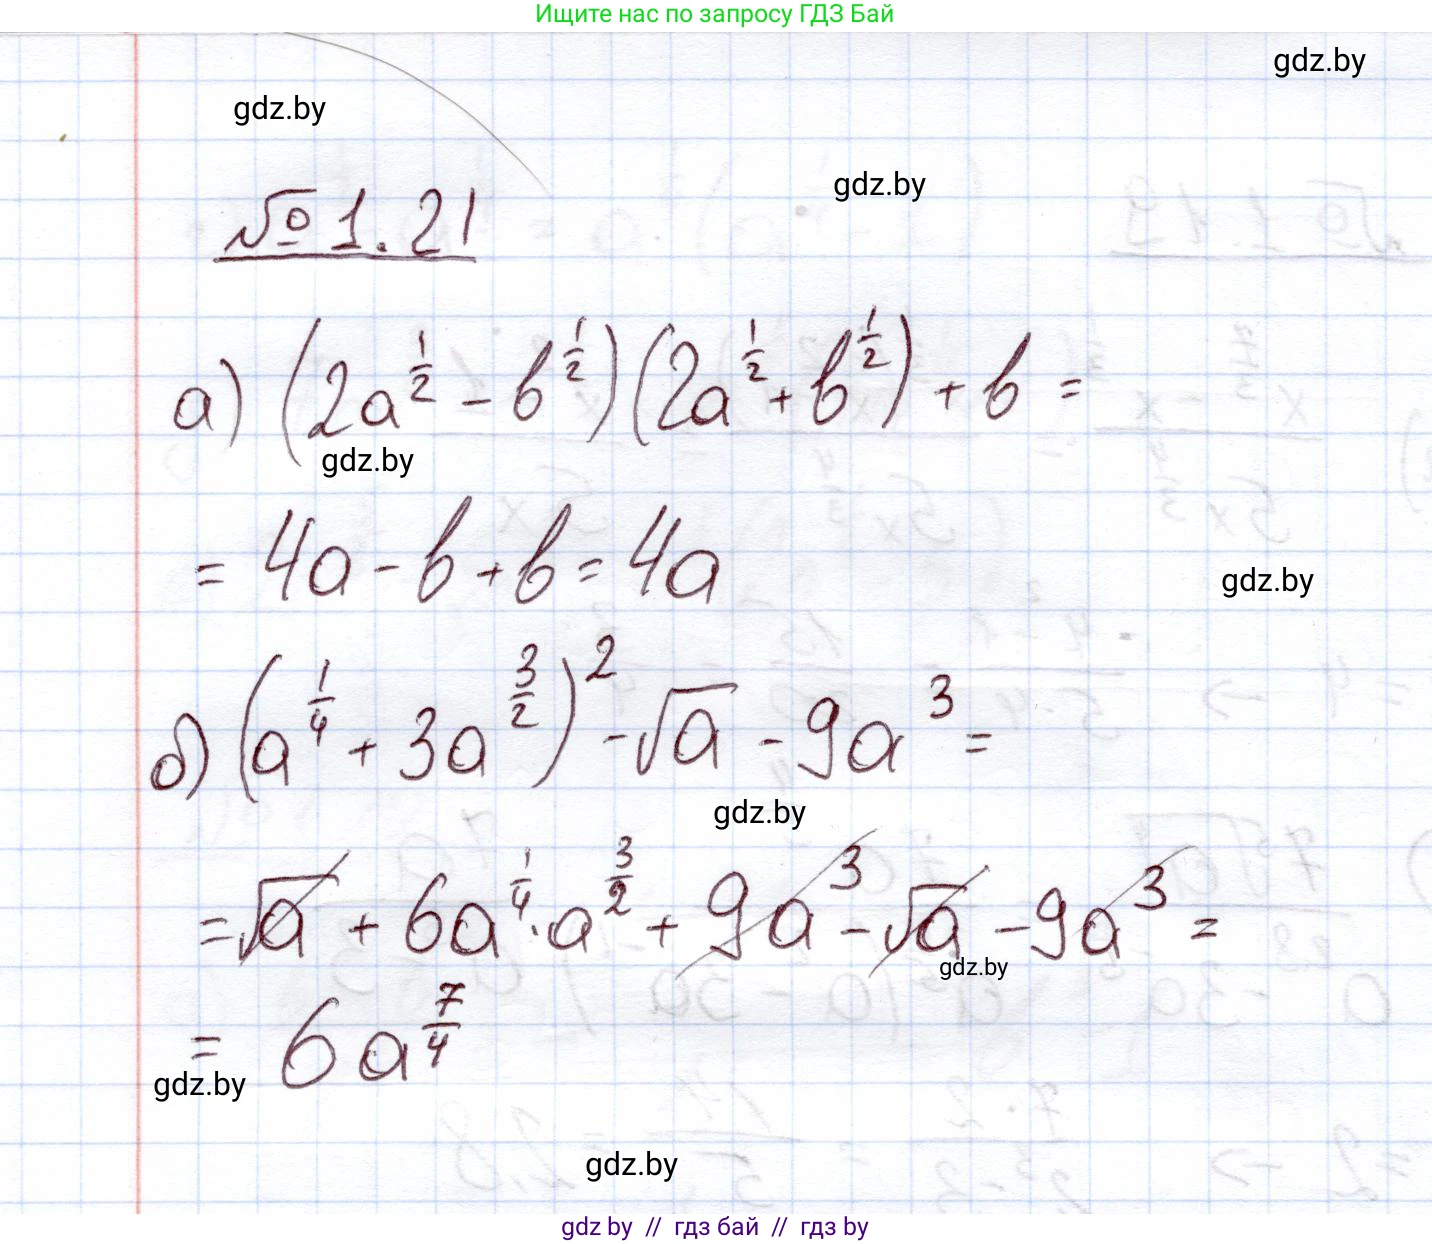 Ищите нас по запросу ГДЗ Бай
gdz.by
gdz.by
gdz.by
№ 1.21
а) (2a^{1/2} - b^{1/2})(2a^{1/2} + b^{1/2}) + b =
gdz.by
= 4a - b + b = 4a
gdz.by
б) (a^{1/4} + 3a^{3/2})^2 - √a - 9a^3 =
gdz.by
= √a + 6a^{1/4} · a^{3/2} + 9a^3 - √a - 9a^3 =
gdz.by
= 6a^{7/4}
gdz.by
gdz.by
gdz by // гдз бай // гдз by